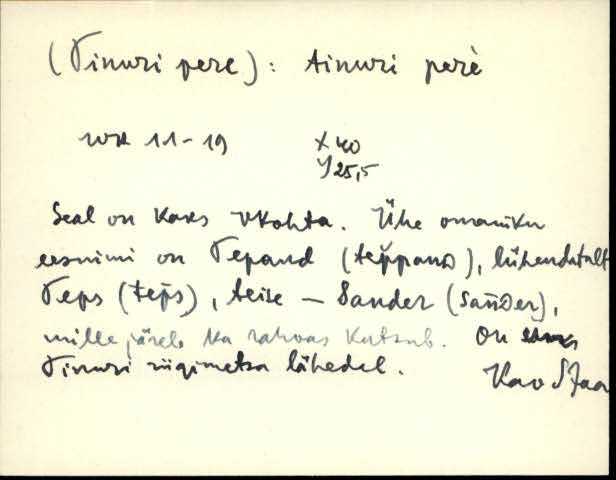 (Tinuri pere): tinuri perè
WK 11-19 X 40
Y 25,5
Seal on kaks vkohta. Ühe omaniku
eesnimi on Tepand (tep̌panD), lühendatult
Teps (tep̌s), teise – Sander (sańDer),
mille järele ka rahvas kutsub. On
Tinuri riigimetsa lähedal.